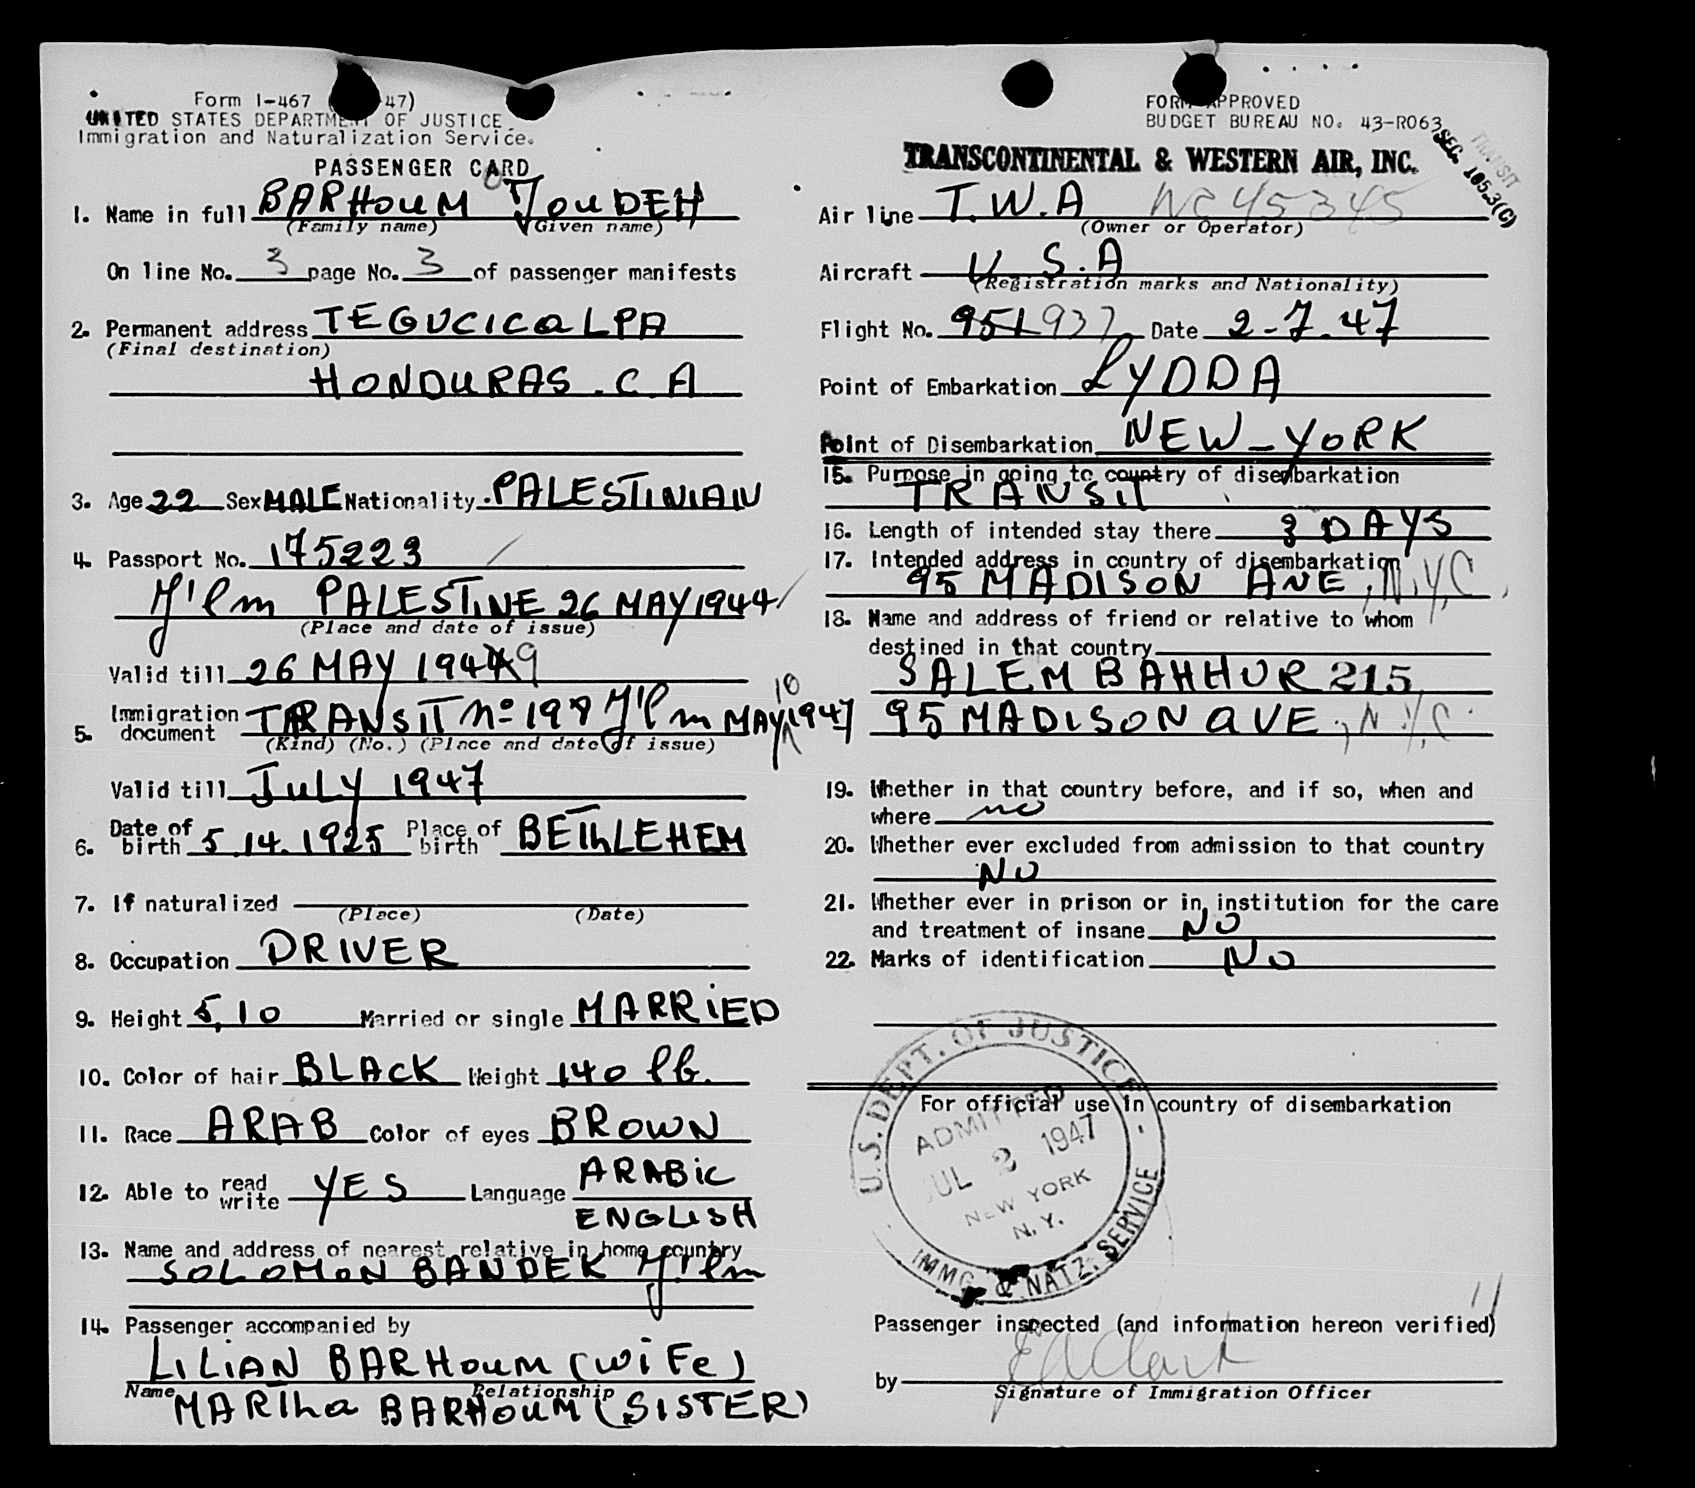 Form I-467 ( 47)
UNITED STATES DEPARTMENT OF JUSTICE
Immigration and Naturalization Service.
PASSENGER CARD
1. Name in full BARHOUM JOUDEH
(Family name) (Given name)
On line No. 3 page No. 3 of passenger manifests
2. Permanent address TEGUCICALPA
(Final destination)
HONDURAS. C. A
3. Age 22 Sex MALE Nationality PALESTINIAN
4. Passport No. 175223
J'lm PALESTINE 26 MAY 1944
(Place and date of issue)
Valid till 26 MAY 1949
5. Immigration document TRANSIT No 197 J'lm MAY 10 1947
(Kind) (No.) (Place and date of issue)
Valid till JULY 1947
6. Date of birth 5.14.1925 Place of birth BEThLEHEM
7. If naturalized
(Place) (Date)
8. Occupation DRIVER
9. Height 5,10 Married or single MARRiED
10. Color of hair BLACK Weight 140 lb.
11. Race ARAB Color of eyes BROWN
12. Able to read write YES Language ARABiC
ENGLISH
13. Name and address of nearest relative in home country
SOLOMON BANDEK J'lm
14. Passenger accompanied by
LILIAN BARHOUM (WiFe)
Name Relationship
MARTha BARHOUM (SISTER)
FORM APPROVED
BUDGET BUREAU NO. 43-R063
TRANSIT
SEC. 105.3(C)
TRANSCONTINENTAL & WESTERN AIR, INC.
Air line T.W.A NC45345
(Owner or Operator)
Aircraft U.S.A
(Registration marks and Nationality)
Flight No. 951 937 Date 2-7.47
Point of Embarkation LYDDA
Point of Disembarkation NEW-YORK
15. Purpose in going to country of disembarkation
TRANSIT
16. Length of intended stay there 3 DAYS
17. Intended address in country of disembarkation
95 MADISON AVE, N.Y.C.
18. Name and address of friend or relative to whom
destined in that country
SALEM BAHHUR 215
95 MADISON AVE., N.Y.C.
19. Whether in that country before, and if so, when and
where no
20. Whether ever excluded from admission to that country
NO
21. Whether ever in prison or in institution for the care
and treatment of insane NO
22. Marks of identification No
For official use in country of disembarkation
U.S. DEPT. OF JUSTICE
ADMITTED
JUL 2 1947
NEW YORK
N.Y.
IMMG. & NATZ. SERVICE
Passenger inspected (and information hereon verified)
by
Signature of Immigration Officer